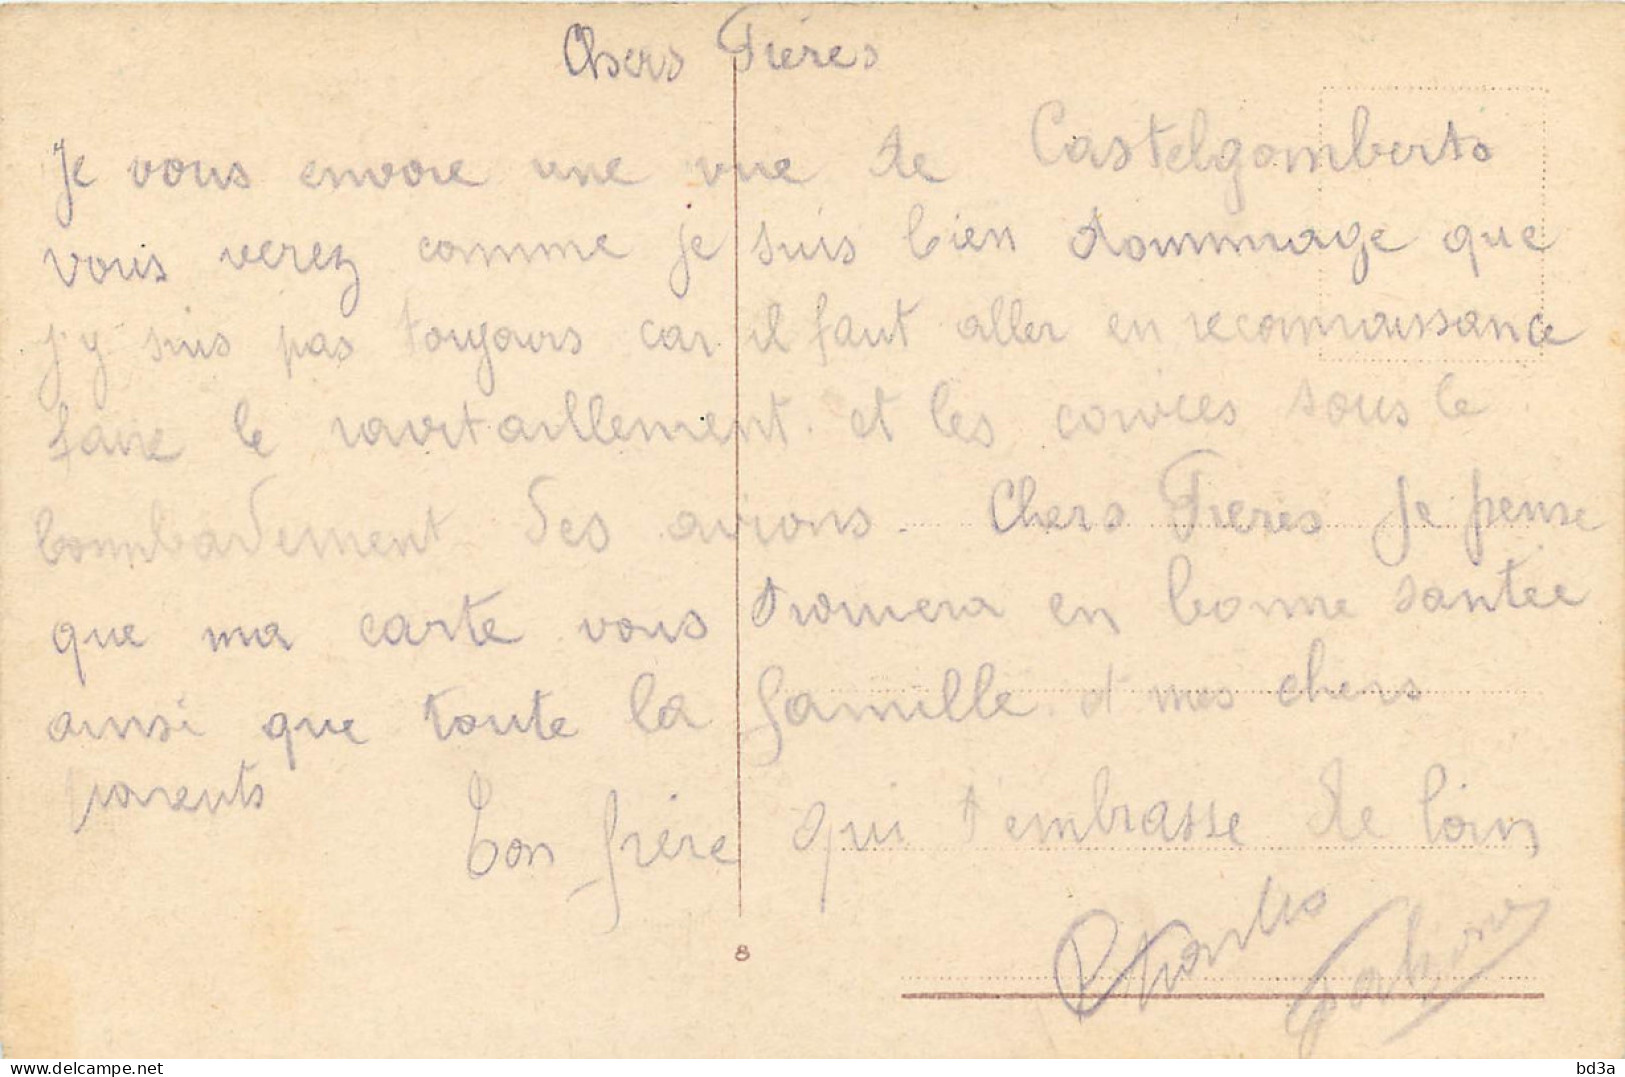 Chers Frères
Je vous envoie une vue de Castelgomberto
vous verez comme je suis bien dommage que
j'y suis pas toujours car il faut aller en reconnaissance
faire le ravitaillement et les corvées sous le
bombardement des avions. Chers Freres je pense
que ma carte vous trouvera en bonne santée
ainsi que toute la famille et mes chers
parents
Ton frère qui t'embrasse de loin
Charles
8
delcampe.net
bd3a